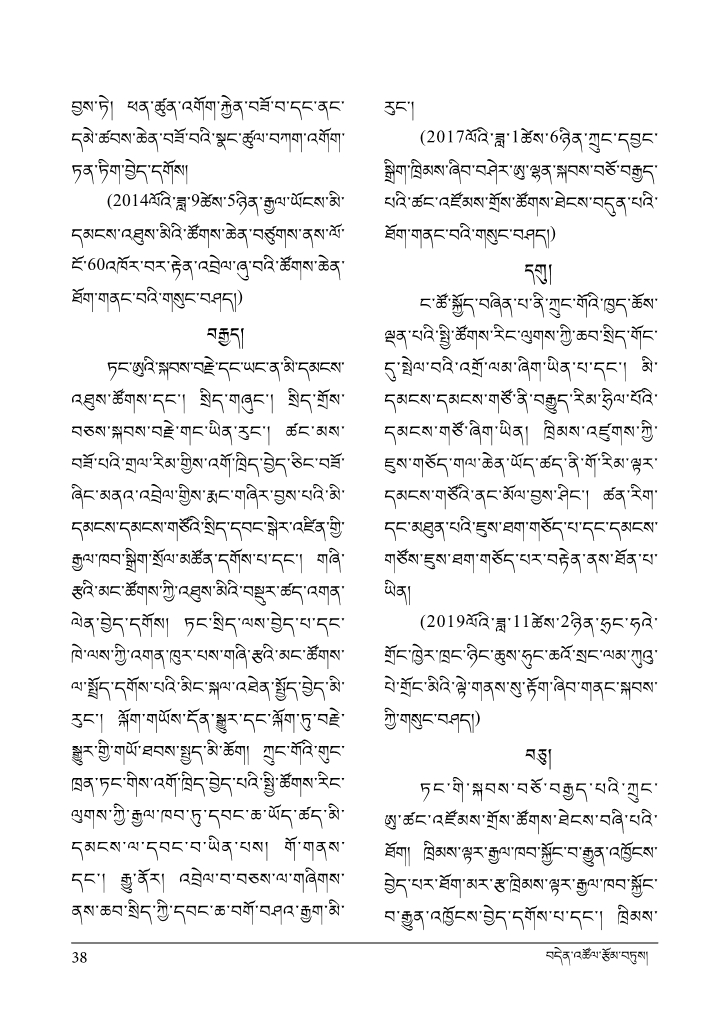 བྱས་ཏེ། ཕན་ཚུན་འགོག་རྐྱེན་བཟོ་བ་དང་ནང་
དམེ་ཚབས་ཆེན་བཟོ་བའི་སྣང་ཚུལ་བཀག་འགོག་
ཏན་ཏིག་བྱེད་དགོས།
(2014ལོའི་ཟླ་9ཚེས་5ཉིན་རྒྱལ་ཡོངས་མི་
དམངས་འཐུས་མིའི་ཚོགས་ཆེན་བཙུགས་ནས་ལོ་
ངོ་60འཁོར་བར་རྟེན་འབྲེལ་ཞུ་བའི་ཚོགས་ཆེན་
ཐོག་གནང་བའི་གསུང་བཤད།)
བརྒྱད།
ཏང་ཨུའི་སྐབས་བརྗེ་དང་ཡང་ན་མི་དམངས་
འཐུས་ཚོགས་དང་། སྲིད་གཞུང་། སྲིད་གྲོས་
བཅས་སྐབས་བརྗེ་གང་ཡིན་རུང་། ཚང་མས་
བཟོ་པའི་གྲལ་རིམ་གྱིས་འགོ་ཁྲིད་བྱེད་ཅིང་བཟོ་
ཞིང་མནའ་འབྲེལ་གྱིས་རྨང་གཞིར་བྱས་པའི་མི་
དམངས་དམངས་གཙོའི་སྲིད་དབང་སྒེར་འཛིན་གྱི་
རྒྱལ་ཁབ་སྒྲིག་སྲོལ་མཚོན་དགོས་པ་དང་། གཞི་
རྩའི་མང་ཚོགས་ཀྱི་འཐུས་མིའི་བསྡུར་ཚད་འགན་
ལེན་བྱེད་དགོས། ཏང་སྲིད་ལས་བྱེད་པ་དང་
ཁེ་ལས་ཀྱི་འགན་ཁུར་པས་གཞི་རྩའི་མང་ཚོགས་
ལ་སྤྲོད་དགོས་པའི་མིང་སྐལ་འཐེན་སྤྱོད་བྱེད་མི་
རུང་། ལྐོག་གཡོས་དོན་སྒྱུར་དང་ལྐོག་ཏུ་བརྗེ་
སྒྱུར་གྱི་གཡོ་ཐབས་སྤྱད་མི་ཆོག། ཀྲུང་གོའི་གུང་
ཁྲན་ཏང་གིས་འགོ་ཁྲིད་བྱེད་པའི་སྤྱི་ཚོགས་རིང་
ལུགས་ཀྱི་རྒྱལ་ཁབ་ཏུ་དབང་ཆ་ཡོད་ཚད་མི་
དམངས་ལ་དབང་བ་ཡིན་པས། གོ་གནས་
དང་། རྒྱུ་ནོར། འབྲེལ་བ་བཅས་ལ་གཞིགས་
ནས་ཆབ་སྲིད་ཀྱི་དབང་ཆ་བགོ་བཤའ་རྒྱག་མི་
རུང་།
(2017ལོའི་ཟླ་1ཚེས་6ཉིན་ཀྲུང་དབྱང་
སྒྲིག་ཁྲིམས་ཞིབ་བཤེར་ཨུ་ལྷན་སྐབས་བཅོ་བརྒྱད་
པའི་ཚང་འཛོམས་གྲོས་ཚོགས་ཐེངས་བདུན་པའི་
ཐོག་གནང་བའི་གསུང་བཤད།)
དགུ།
ང་ཚོ་སྐྱོད་བཞིན་པ་ནི་ཀྲུང་གོའི་ཁྱད་ཆོས་
ལྡན་པའི་སྤྱི་ཚོགས་རིང་ལུགས་ཀྱི་ཆབ་སྲིད་གོང་
དུ་སྤེལ་བའི་འགྲོ་ལམ་ཞིག་ཡིན་པ་དང་། མི་
དམངས་དམངས་གཙོ་ནི་བརྒྱུད་རིམ་ཧྲིལ་པོའི་
དམངས་གཙོ་ཞིག་ཡིན། ཁྲིམས་འཛུགས་ཀྱི་
ཇུས་གཅོད་གལ་ཆེན་ཡོད་ཚད་ནི་གོ་རིམ་ལྟར་
དམངས་གཙོའི་ནང་མོལ་བྱས་ཤིང་། ཚན་རིག་
དང་མཐུན་པའི་ཇུས་ཐག་གཅོད་པ་དང་དམངས་
གཙོས་ཇུས་ཐག་གཅོད་པར་བརྟེན་ནས་ཐོན་པ་
ཡིན།
(2019ལོའི་ཟླ་11ཚེས་2ཉིན་ཧྲང་ཧའེ་
གྲོང་ཁྱེར་ཁྲང་ཉིང་ཆུས་ཧུང་ཆའོ་སྲང་ལམ་ཀུའུ་
པེ་གྲོང་མིའི་ལྟེ་གནས་སུ་རྟོག་ཞིབ་གནང་སྐབས་
ཀྱི་གསུང་བཤད།)
བཅུ།
ཏང་གི་སྐབས་བཅོ་བརྒྱད་པའི་ཀྲུང་
ཨུ་ཚང་འཛོམས་གྲོས་ཚོགས་ཐེངས་བཞི་པའི་
ཐོག། ཁྲིམས་ལྟར་རྒྱལ་ཁབ་སྐྱོང་བ་རྒྱུན་འཁྱོངས་
བྱེད་པར་ཐོག་མར་རྩ་ཁྲིམས་ལྟར་རྒྱལ་ཁབ་སྐྱོང་
བ་རྒྱུན་འཁྱོངས་བྱེད་དགོས་པ་དང་། ཁྲིམས་
38
བདེན་འཚོལ་རྩོམ་བཏུས།